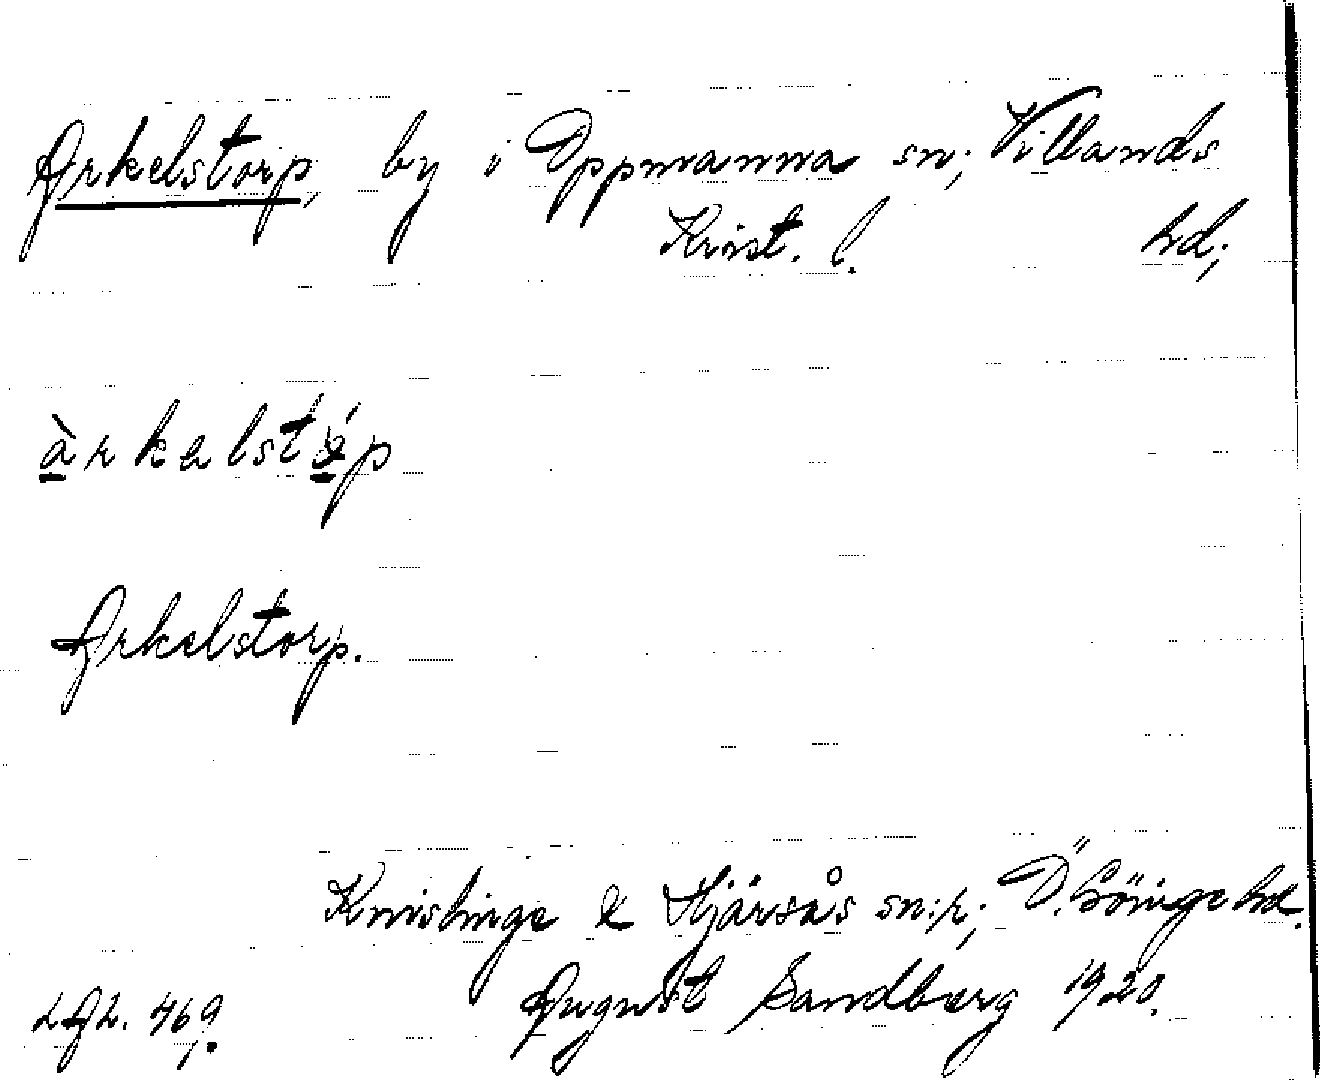 Arkelstorp, by i Oppmanna sn; Villands
Krist. l. hd;
àrkalstáp
Arkelstorp.
Knislinge & Hjärsås sn:r; Ö. Göinge hd.
LAL. 469. August Sandberg 1920.